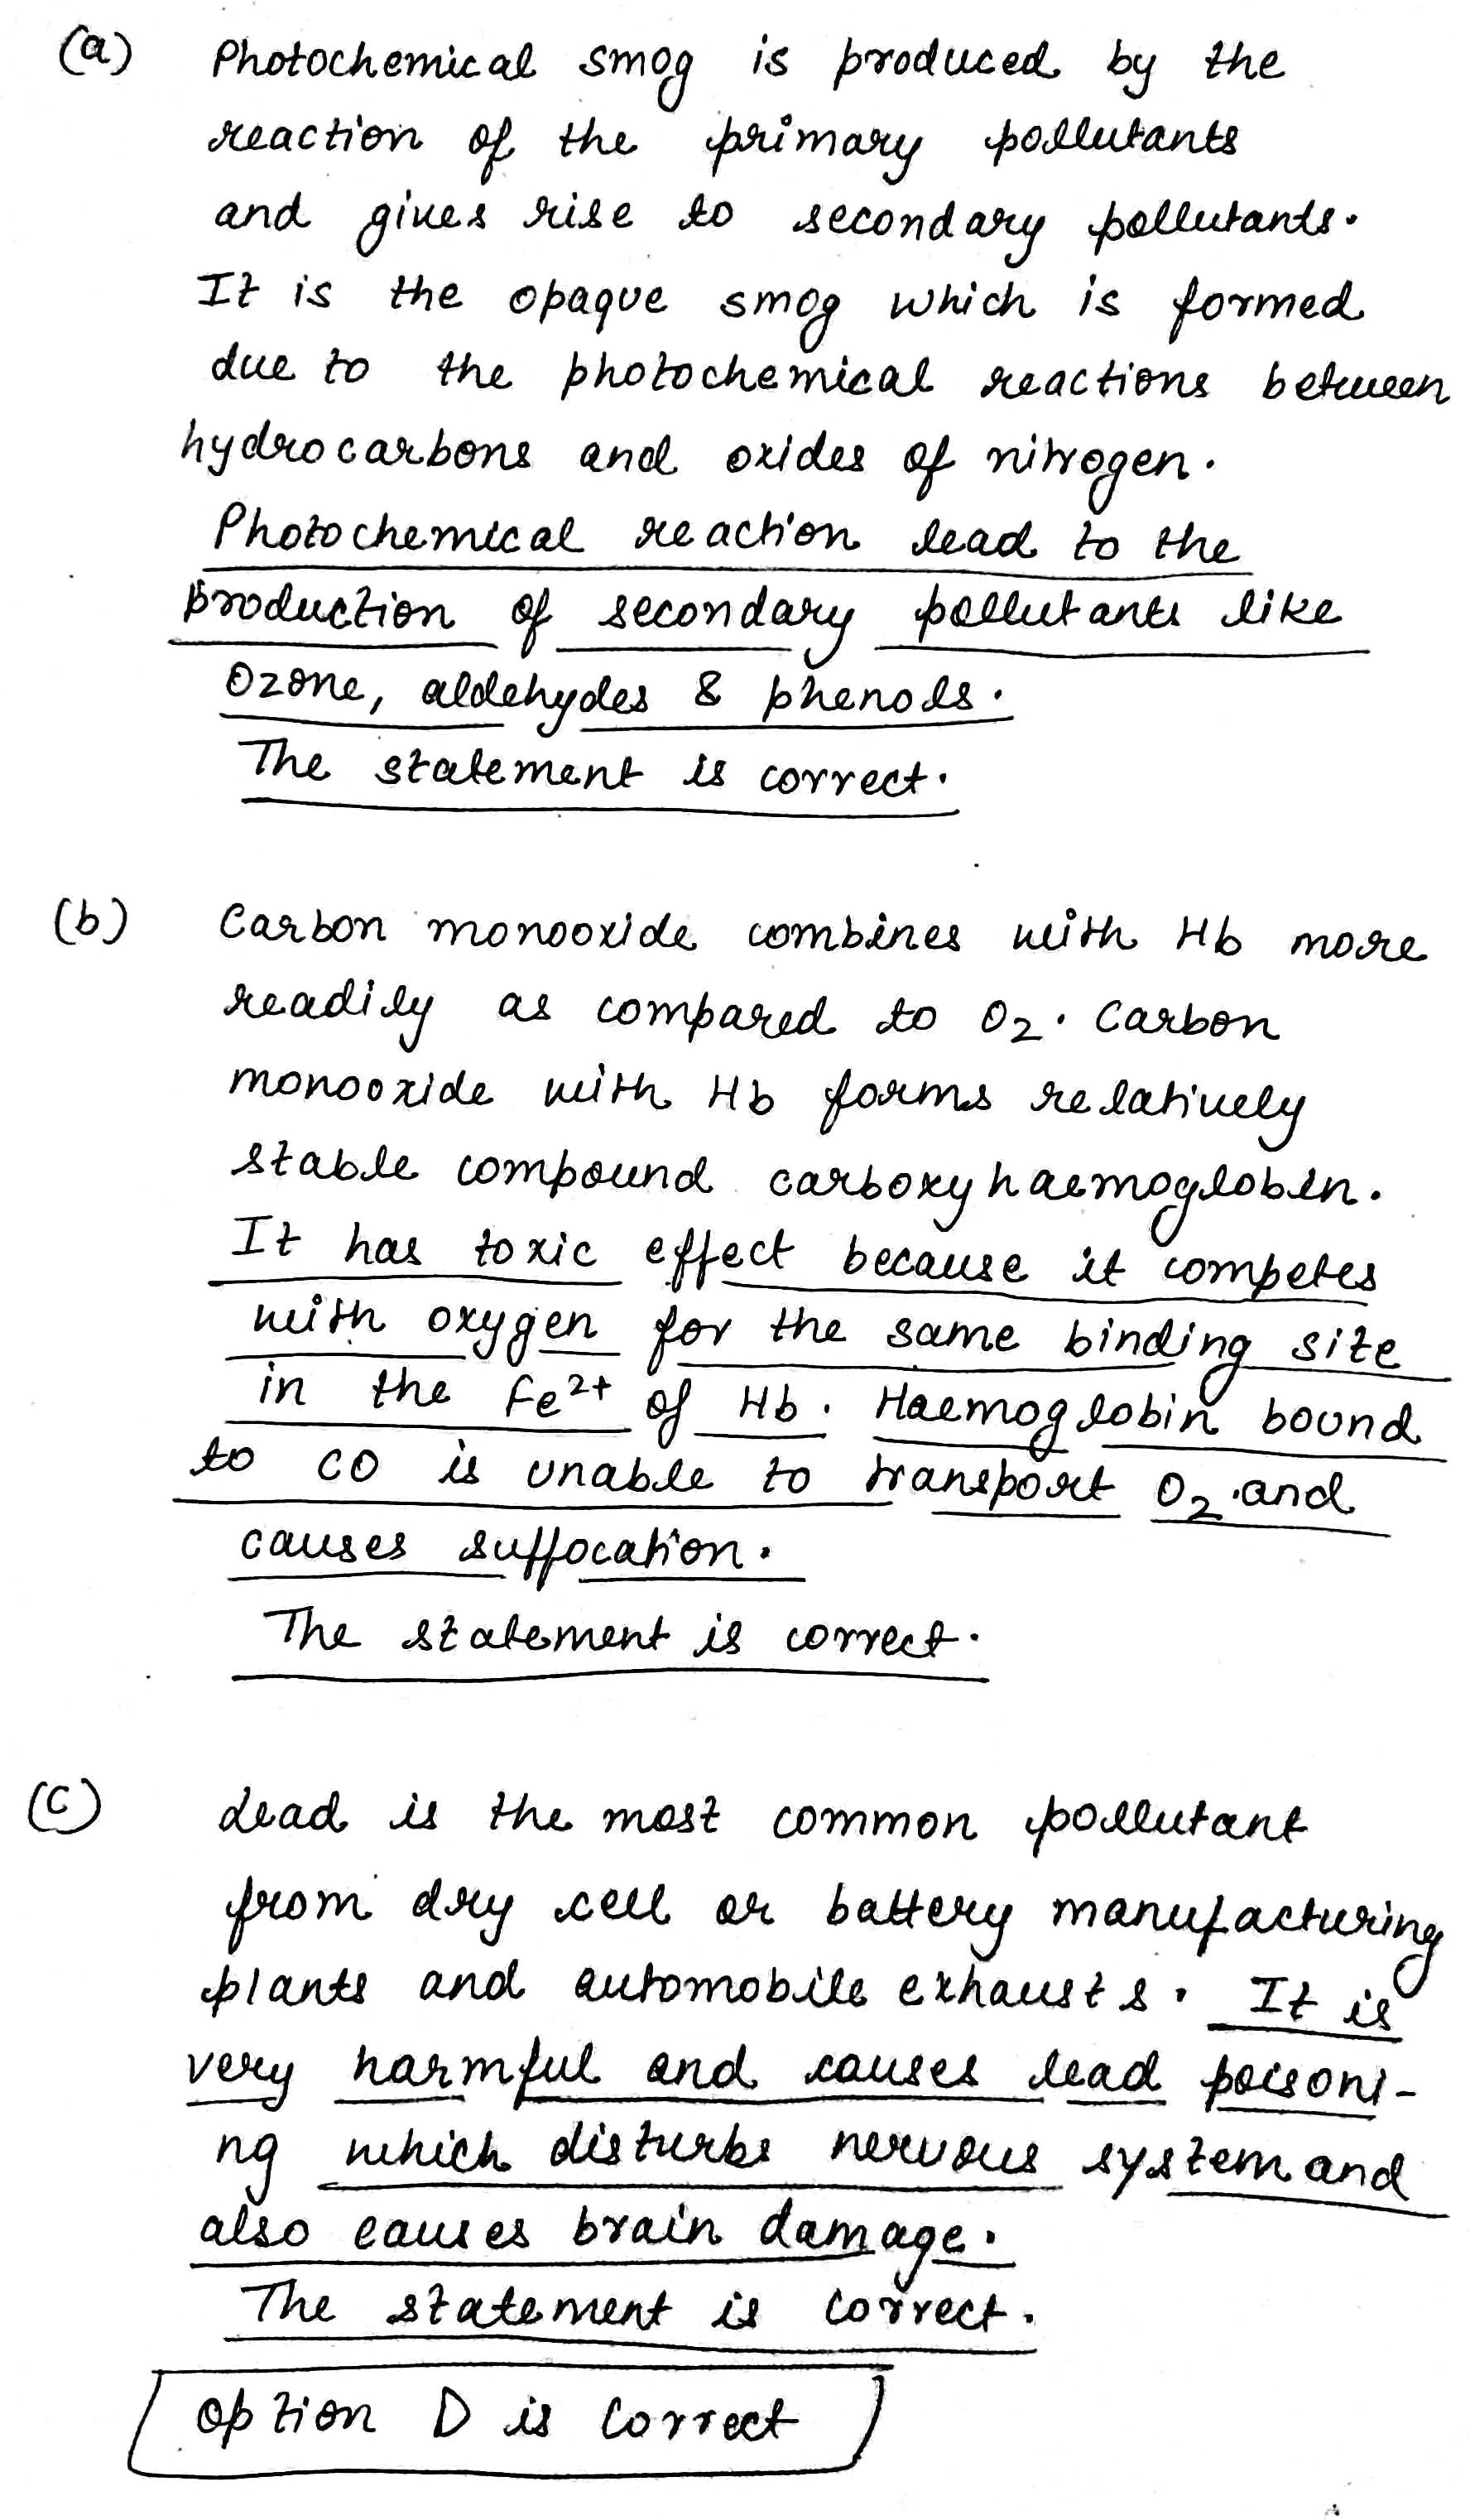 (a) Photochemical smog is produced by the
reaction of the primary pollutants
and gives rise to secondary pollutants.
It is the opaque smog which is formed
due to the photochemical reactions between
hydrocarbons and oxides of nitrogen.
Photochemical reaction lead to the
production of secondary pollutants like
ozone, aldehydes & phenols.
The statement is correct.
(b) Carbon monooxide combines with Hb more
readily as compared to O2. Carbon
monooxide with Hb forms relatively
stable compound carboxyhaemoglobin.
It has toxic effect because it competes
with oxygen for the same binding site
in the Fe²⁺ of Hb. Haemoglobin bound
to CO is unable to transport O2 and
causes suffocation.
The statement is correct.
(c) Lead is the most common pollutant
from dry cell or battery manufacturing
plants and automobile exhausts. It is
very harmful and causes lead poisoni-
ng which disturbs nervous system and
also causes brain damage.
The statement is correct.
option D is correct